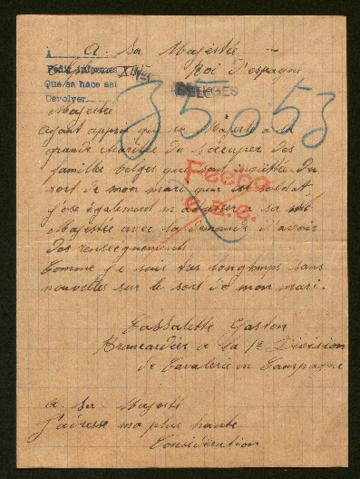 A Sa Majestée
Roi D'espagne
Pedir informes XIV-1
Que se hace así
Devolver
BELGES
35053
Majestée
Ayant appris que sa Majesté a la
grande de s'occuper des
famille belges qui sont inquiètée Du
sort de mon mari qui est soldat
j'ose également m'adresser a sa
Majestée avec la demande d'avoir
Des renseignements
Comme je suis très longtemps sans
nouvelles sur le sort de mon mari.
Fecho
e.a.c.
Gaston
Brancardier a la 1e Division
de Cavalerie en Campagne
a Sa Majesté
J'adresse ma plus haute
Considération